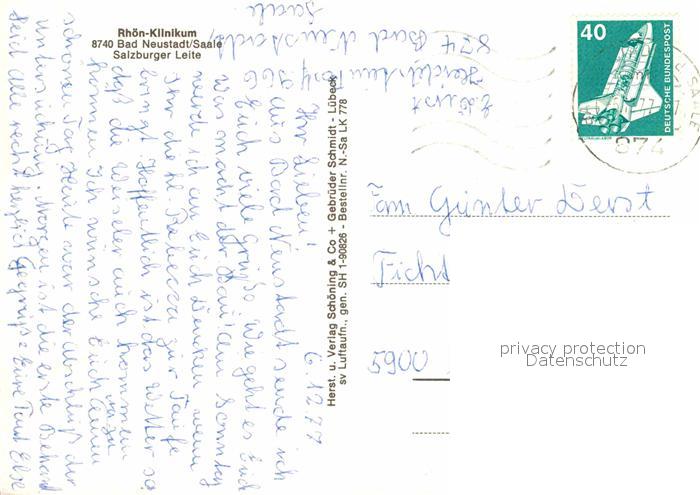 Rhön-Klinikum
8740 Bad Neustadt/Saale
Salzburger Leite
40
DEUTSCHE BUNDESPOST
874
Herst. u. Verlag Schöning & Co + Gebrüder Schmidt - Lübeck
sv Luftaufn., gen. SH 1-90826 - Bestellnr. N.-Sa LK 778
874 Bad Neustadt
Saale
6.12.77
Ihr Lieben!
Aus Bad Neustadt sende ich
Euch viele Grüße. Wie geht es Euch
was macht der
werde ich an Euch denken wenn
Ihr die kl. Rebecca zur Taufe
bringt. Hoffentlich ist das Wetter so
daß die Weseler auch kommen
können. Ich wünsche Euch allen
schönen Tag. Heute war der Abschluß der
untersuchung. Morgen ist die erste Behand
Seid alle recht herzlich gegrüßt Eure Tant Else
Fam Günter Derst
Ficht
5900
privacy protection
Datenschutz